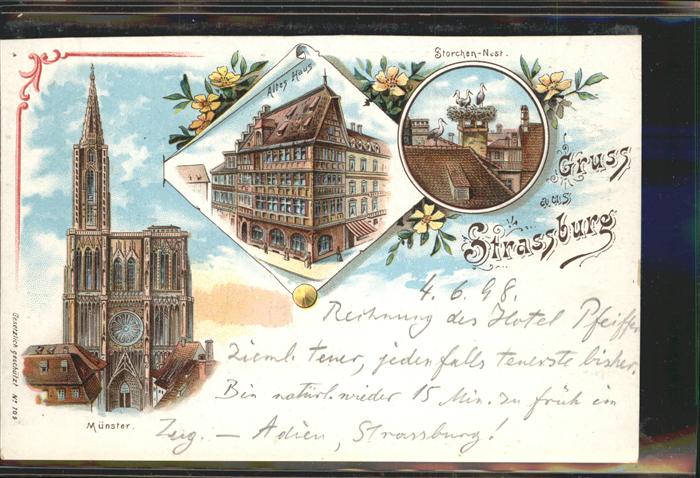 Altes Haus.
Storchen-Nest.
Gruss
aus
Strassburg
4.6.98.
Rechnung des Hotel Pfeiffer
Zieml. teuer, jedenfalls teuerste bisher.
Bin natürl. wieder 15 Min. zu früh im
Zug. — Adien, Strassburg!
Münster.
Gesetzlich geschützt No 103